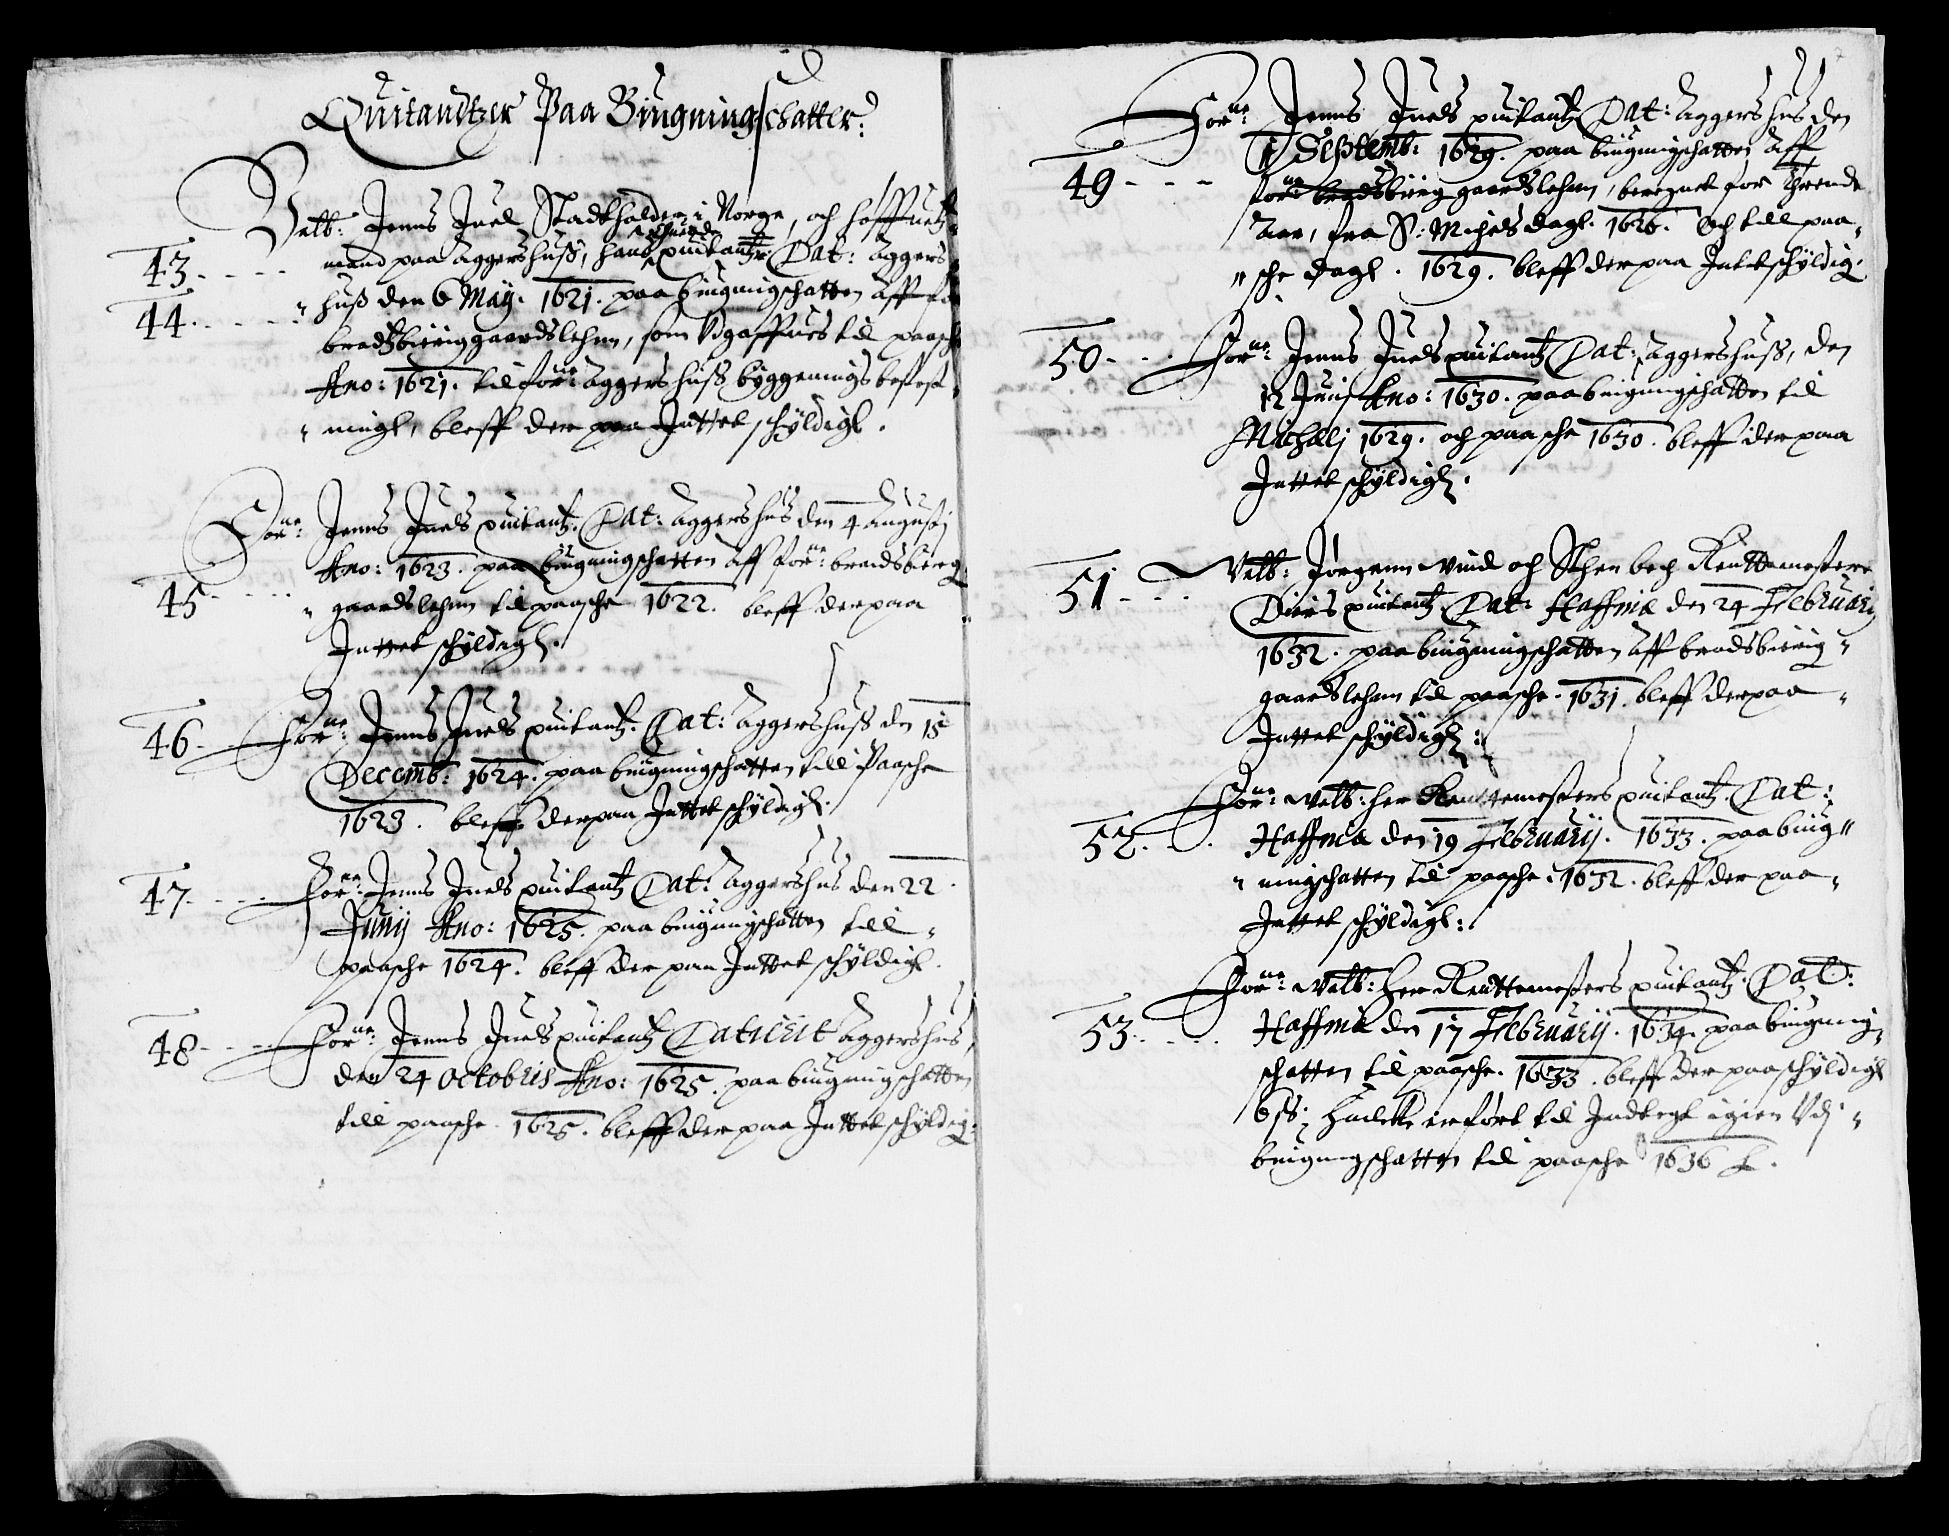 Quitantzer Paa Biugningschatter:
Velb: Jenns Juel Stadtholder i Norge, och höffuetz-
43. - - - - mand paa Aggershuss, hans quitantzer Dat: Aggers
44. - - - - huss den 6 Maij. 1621. paa biugningschatten aff for
bradtzbierig gaardslehnn, som Vdgaffues til paasche
Ano: 1621. til forne: Aggershuss byggenings befest-
ningh, bleff der paa Inttet schyldigh.
Forne: Jenns Juels quitantz. Dat: Aggershus den 4 Augustj
Ano: 1623. paa biugningschatten aff forne: bradsbierig
45 - - - - gaardslehnn til paasche 1622. bleff der paa
Inttet schyldigh.
46 - Forne: Jenns Juels quitantz. Dat: Aggershuss den 15
Decemb: 1624. paa biugningschatten till Paasche
1623. bleff der paa Inttet schyldigh.
47 - - - - Forne: Jenns Juels quitantz Dat: Aggershus den 22
Junij Ano: 1625. paa biugningschatten till
paasche 1624. bleff der paa Inttet schyldigh.
48 - - - - Forne: Jenns Juels quitantz Daterit Aggershus,
den 24 Octobris Ano: 1625. paa biugningschatten
till paasche. 1625. bleff der paa Inttet schyldig:
Forne: Jenns Juels quitantz Dat: Aggershus den
1 Septemb: 1629. paa biugningschatten aff
49 - - - forne bradsbierg gaardslehnn, beregnet for Thrende
Aar, fra S: Michels dagh. 1626. och till paa-
sche dagh. 1629. bleff der paa Intet schyldig.
50 - - Forne: Jenns Juels quitantz Dat: Aggershuss, den
12 Junij Ano: 1630. paa biugningschatten til
Michelj 1629. och paasche 1630. bleff der paa
Inttet schyldigh.
51 - - - Velb: Jørgenn Vind och Sthen bech Renttemestere
Dieris quitantz Dat: Haffniæ den 24 Februarij
1632. paa biugningschatten aff bradsbierig
gaardslehnn til paasche. 1631. bleff der paa
Inttet schyldigh:
Forne: Velb: her Renttemesters quitantz. Dat:
52. - - Haffniæ den 19 Februarij. 1633. paa biug-
ningschatten til paasche. 1632. bleff der paa
Inttet schyldigh:
Forne: Velb: her Renttemesters quitantz. Dat:
53. - - - Haffniæ den 17 Februarij. 1634. paa biugning-
schatten til paasche. 1633. bleff der paa schyldigh
6 ß; huilcke er ført til Indtegt igien Vdj
biugningschatten til paasche 1636